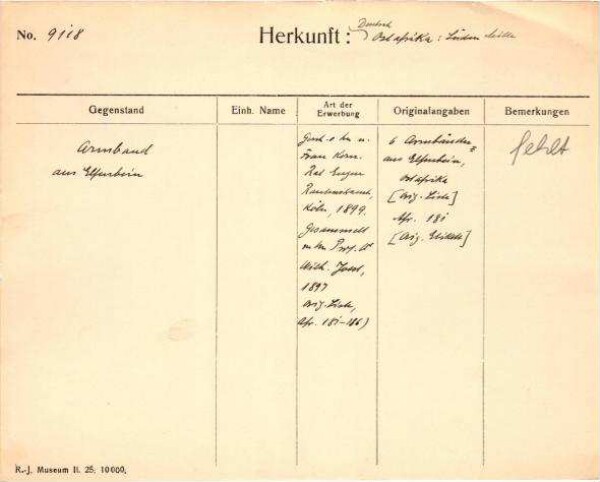 No. 9118
Herkunft: Deutsch
Ostafrika: Süden
Gegenstand
Einh. Name
Art der
Erwerbung
Originalangaben
Bemerkungen
Armband
aus Elfenbein
Gesch. u.
Frau Kom.
Rat Eugen
Rautenstrauch,
Köln, 1899.
Gesammelt
Prof. Dr
Wilh. Joest,
1897
Orig. Liste,
Afr. 181-186)
6 Armbänder
aus Elfenbein,
Ostafrika
[Orig. Liste]
Afr. 181
[Orig. Etikett]
fehlt
R.-J. Museum II. 25. 10000.